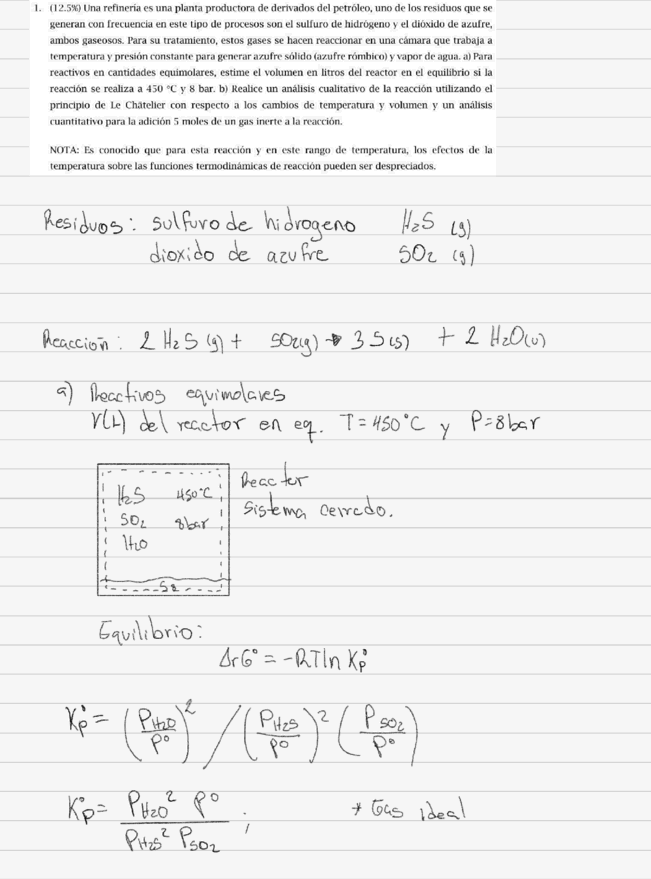 1. (12.5%) Una refinería es una planta productora de derivados del petróleo, uno de los residuos que se
generan con frecuencia en este tipo de procesos son el sulfuro de hidrógeno y el dióxido de azufre,
ambos gaseosos. Para su tratamiento, estos gases se hacen reaccionar en una cámara que trabaja a
temperatura y presión constante para generar azufre sólido (azufre rómbico) y vapor de agua. a) Para
reactivos en cantidades equimolares, estime el volumen en litros del reactor en el equilibrio si la
reacción se realiza a 450 °C y 8 bar. b) Realice un análisis cualitativo de la reacción utilizando el
principio de Le Châtelier con respecto a los cambios de temperatura y volumen y un análisis
cuantitativo para la adición 5 moles de un gas inerte a la reacción.
NOTA: Es conocido que para esta reacción y en este rango de temperatura, los efectos de la
temperatura sobre las funciones termodinámicas de reacción pueden ser despreciados.
Residuos: sulfuro de hidrogeno H₂S (g)
dioxido de azufre SO₂ (g)
Reacción: 2 H₂S (g) + SO₂(g) → 3 S(s) + 2 H₂O(v)
a) Reactivos equimolares
V(L) del reactor en eq. T=450°C y P=8bar
H₂S 450°C
SO₂ 8bar
H₂O
Reactor
sistema cerrado.
Equilibrio:
ΔrG° = -RTln Kp°
Kp° = (P_H₂O/P°)² / (P_H₂S/P°)² (P_SO₂/P°)
Kp° = P_H₂O² P° / P_H₂S² P_SO₂ ; * Gas ideal